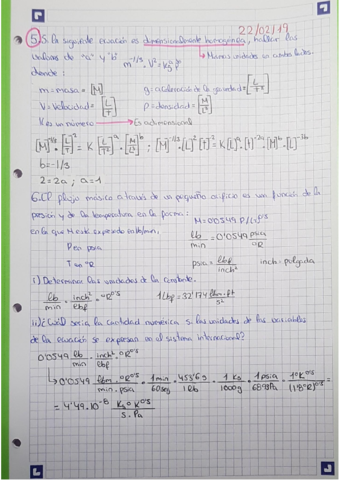 22/02/19
5. S. la siguiente ecuación es dimensionalmente homogénea, hallar los
valores de "a" y "b"
m^-1/3 · V² = K g^a ρ^b
→ Mismas unidades en ambos lados.
donde:
m = masa = [M]
g: aceleración de la gravedad = [L/T²]
V = velocidad = [L/T]
ρ = densidad = [M/L³]
K es un número → Es adimensional
b = -1/3
2 = 2a ; a = 1
6. El flujo másico a través de un pequeño orificio es una función de la
presión y de la temperatura en la forma:
M = 0'0549 P/T^0'5
en la que M está expresado en lb/min.
P en psia
T en °R
lb/min = 0'0549 psia/°R
psia = lbf/inch²
inch = pulgada
i) Determinar las unidades de la constante.
lb/min · inch²/lbf · °R^0'5
1 lbf = 32'174 lbm·ft/s²
ii) ¿Cuál sería la cantidad numérica si las unidades de las variables
de la ecuación se expresan en el sistema internacional?
0'0549 lb/min · inch²/lbf · °R^0'5
→ 0'0549 lbm · °R^0'5/min · psia · 1min/60seg · 453'6g/1lb · 1Kg/1000g · 1psia/6898Pa · 1°K^0'5/(1'8°R)^0'5 =
= 4'49·10^-8 Kg · K^0'5/s · Pa